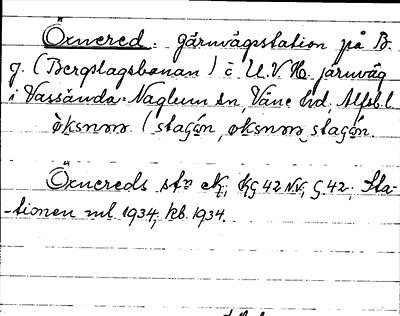 Öxnered. Järnvägsstation på B.
J. (Bergslagsbanan) o. U.V.H. järnväg
i Vassända-Naglum sn, Väne hd, Älfsb. l.
öksnərə. (stagón, øksnərə stagón.
Öxnereds st:n EK; KG 42 NV; G 42; Sta-
-tionen ml. 1934, kb. 1934.